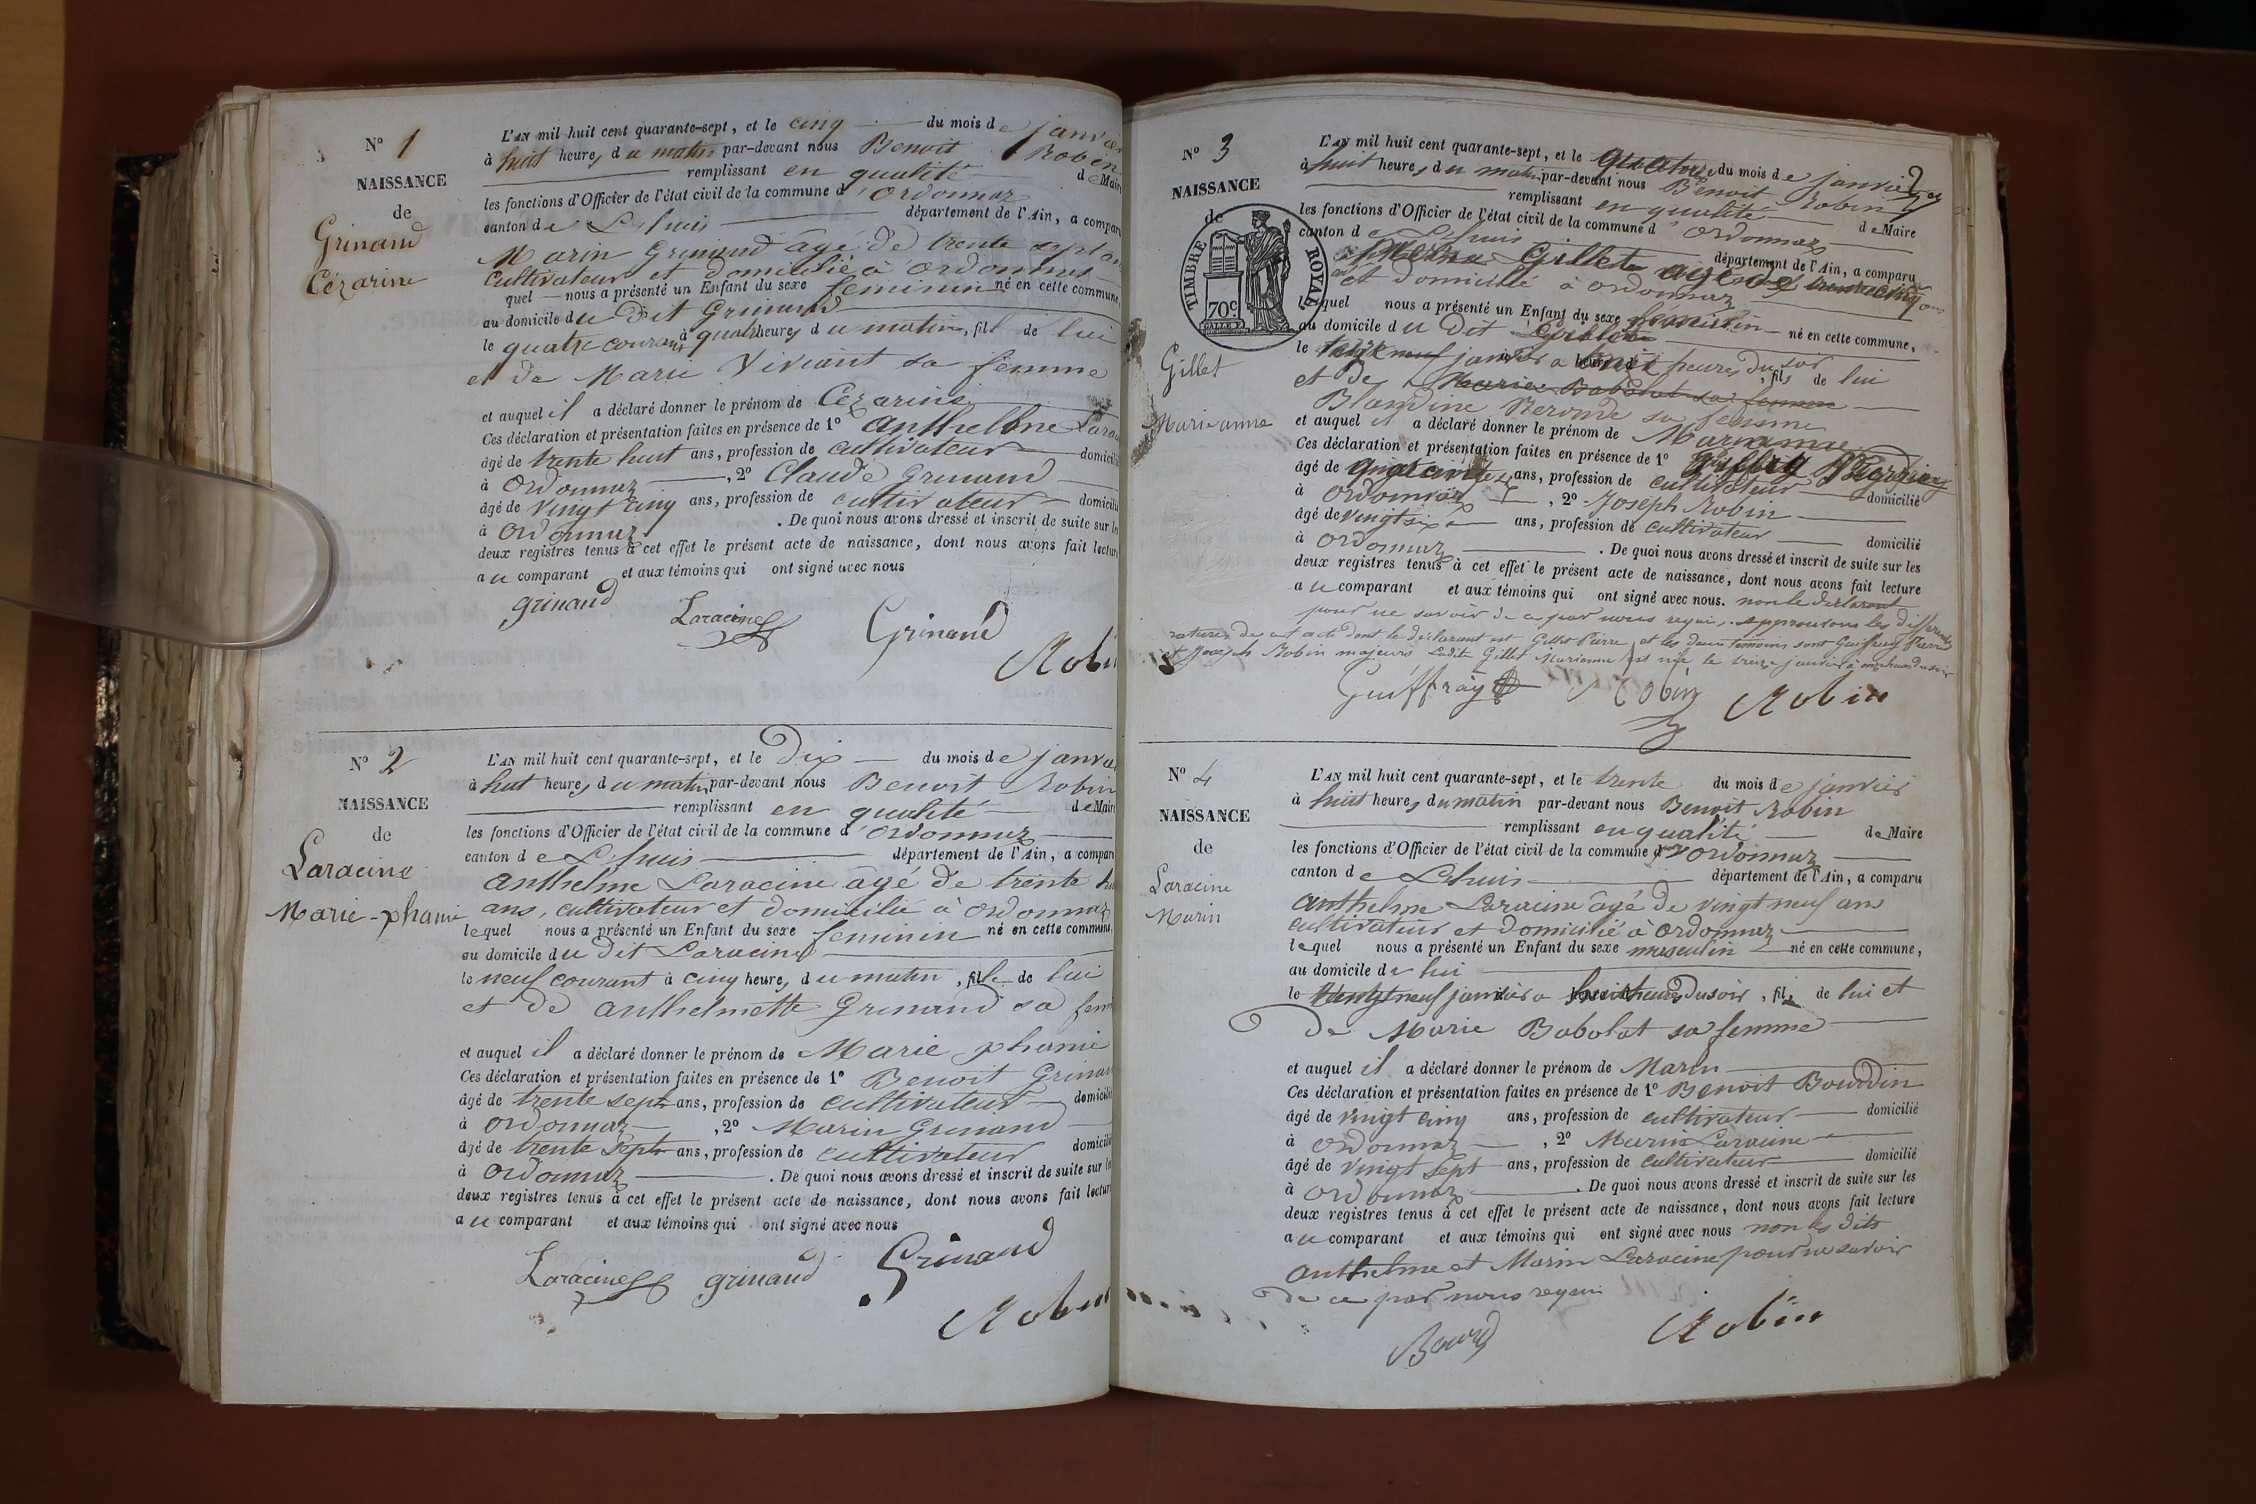 N° 1
NAISSANCE
de
Grinand
Cézarine
L'AN mil huit cent quarante-sept, et le cinq du mois de janvier
à huit heures du matin par-devant nous Benoit Robin
remplissant en qualité de Maire
les fonctions d'Officier de l'état civil de la commune d'ordonnaz
canton de Lhuis département de l'Ain, a comparu
Marin Grinand âgé de trente sept ans
cultivateur et domicilié à ordonnaz
quel nous a présenté un Enfant du sexe feminin né en cette commune,
au domicile du dit Grinand
le quatre courant à quatre heures du matin, fille de lui
et de Marie Viviant sa femme
et auquel il a déclaré donner le prénom de Cézarine
Ces déclaration et présentation faites en présence de 1° anthelme
âgé de trente huit ans, profession de cultivateur domicilié
à ordonnaz, 2° Claude Grinand
âgé de vingt cinq ans, profession de cultivateur domicilié
à ordonnaz. De quoi nous avons dressé et inscrit de suite sur les
deux registres tenus à cet effet le présent acte de naissance, dont nous avons fait lecture
au comparant et aux témoins qui ont signé avec nous
grinand Laracine Grinand
Robin
N° 2
NAISSANCE
de
Laracine
Marie-phanie
L'AN mil huit cent quarante-sept, et le Dix du mois de janvier
à huit heures du matin par-devant nous Benoit Robin
remplissant en qualité de Maire
les fonctions d'Officier de l'état civil de la commune d'ordonnaz
canton de Lhuis département de l'Ain, a comparu
anthelme Laracine âgé de trente huit
ans, cultivateur et domicilié à ordonnaz
lequel nous a présenté un Enfant du sexe feminin né en cette commune,
au domicile du dit Laracine
le neuf courant à cinq heures du matin, fille de lui
et de anthelmette Grinand sa femme
et auquel il a déclaré donner le prénom de Marie phanie
Ces déclaration et présentation faites en présence de 1° Benoit Grinand
âgé de trente sept ans, profession de cultivateur domicilié
à ordonnaz, 2° Marin Grinand
âgé de trente sept ans, profession de cultivateur domicilié
à ordonnaz. De quoi nous avons dressé et inscrit de suite sur les
deux registres tenus à cet effet le présent acte de naissance, dont nous avons fait lecture
au comparant et aux témoins qui ont signé avec nous
Laracine grinand Grinand
Robin
N° 3
NAISSANCE
de
TIMBRE ROYAL
70c
Gillet
Marieanne
L'AN mil huit cent quarante-sept, et le quatorze du mois de janvier
à huit heures du matin par-devant nous Benoit Robin
remplissant en qualité de Maire
les fonctions d'Officier de l'état civil de la commune d'ordonnaz
canton de Lhuis département de l'Ain, a comparu
Gillet agé de
et domicilié à ordonnaz
lequel nous a présenté un Enfant du sexe feminin né en cette commune,
au domicile du dit Gillet
le janvier à heures du soir, fils de lui
et de Marie Babolat sa femme
Blandine sa femme
et auquel il a déclaré donner le prénom de Marianne
Ces déclaration et présentation faites en présence de 1°
âgé de ans, profession de cultivateur domicilié
à ordonnaz, 2° Joseph Robin
âgé de vingt six ans, profession de cultivateur domicilié
à ordonnaz. De quoi nous avons dressé et inscrit de suite sur les
deux registres tenus à cet effet le présent acte de naissance, dont nous avons fait lecture
au comparant et aux témoins qui ont signé avec nous. non le déclarant
pour ne savoir de ce par nous requis. approuvons les différentes
ratures de cet acte dont le déclarant est Gillet Pierre et les deux témoins sont Guiffray Pierre
et Joseph Robin majeurs Ladite Gillet Marianne est née le treize janvier à onze heures du soir
Guiffray Robin Robin
N° 4
NAISSANCE
de
Laracine
Marin
L'AN mil huit cent quarante-sept, et le trente du mois de janvier
à huit heures du matin par-devant nous Benoit Robin
remplissant en qualité de Maire
les fonctions d'Officier de l'état civil de la commune d'ordonnaz
canton de Lhuis département de l'Ain, a comparu
anthelme Laracine âgé de vingt neuf ans
cultivateur et domicilié à ordonnaz
lequel nous a présenté un Enfant du sexe masculin né en cette commune,
au domicile de lui
le vingt neuf janvier à huit heures du soir, fils de lui et
de Marie Babolat sa femme
et auquel il a déclaré donner le prénom de Marin
Ces déclaration et présentation faites en présence de 1° Benoit Bourdin
âgé de vingt cinq ans, profession de cultivateur domicilié
à ordonnaz, 2° Marin Laracine
âgé de vingt sept ans, profession de cultivateur domicilié
à ordonnaz. De quoi nous avons dressé et inscrit de suite sur les
deux registres tenus à cet effet le présent acte de naissance, dont nous avons fait lecture
au comparant et aux témoins qui ont signé avec nous non les dits
anthelme et Marin Laracine pour ne savoir
de ce par nous requis
Robin